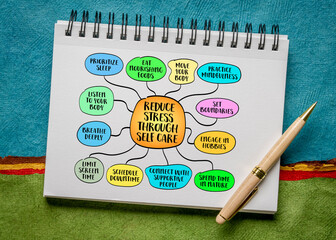 PRIORITIZE
SLEEP
EAT
NOURISHING
FOODS
MOVE
YOUR
BODY
PRACTICE
MINDFULNESS
LISTEN
TO YOUR
BODY
REDUCE
STRESS
THROUGH
SELF CARE
SET
BOUNDARIES
BREATHE
DEEPLY
ENGAGE IN
HOBBIES
LIMIT
SCREEN
TIME
SCHEDULE
DOWNTIME
CONNECT WITH
SUPPORTIVE
PEOPLE
SPEND TIME
IN NATURE